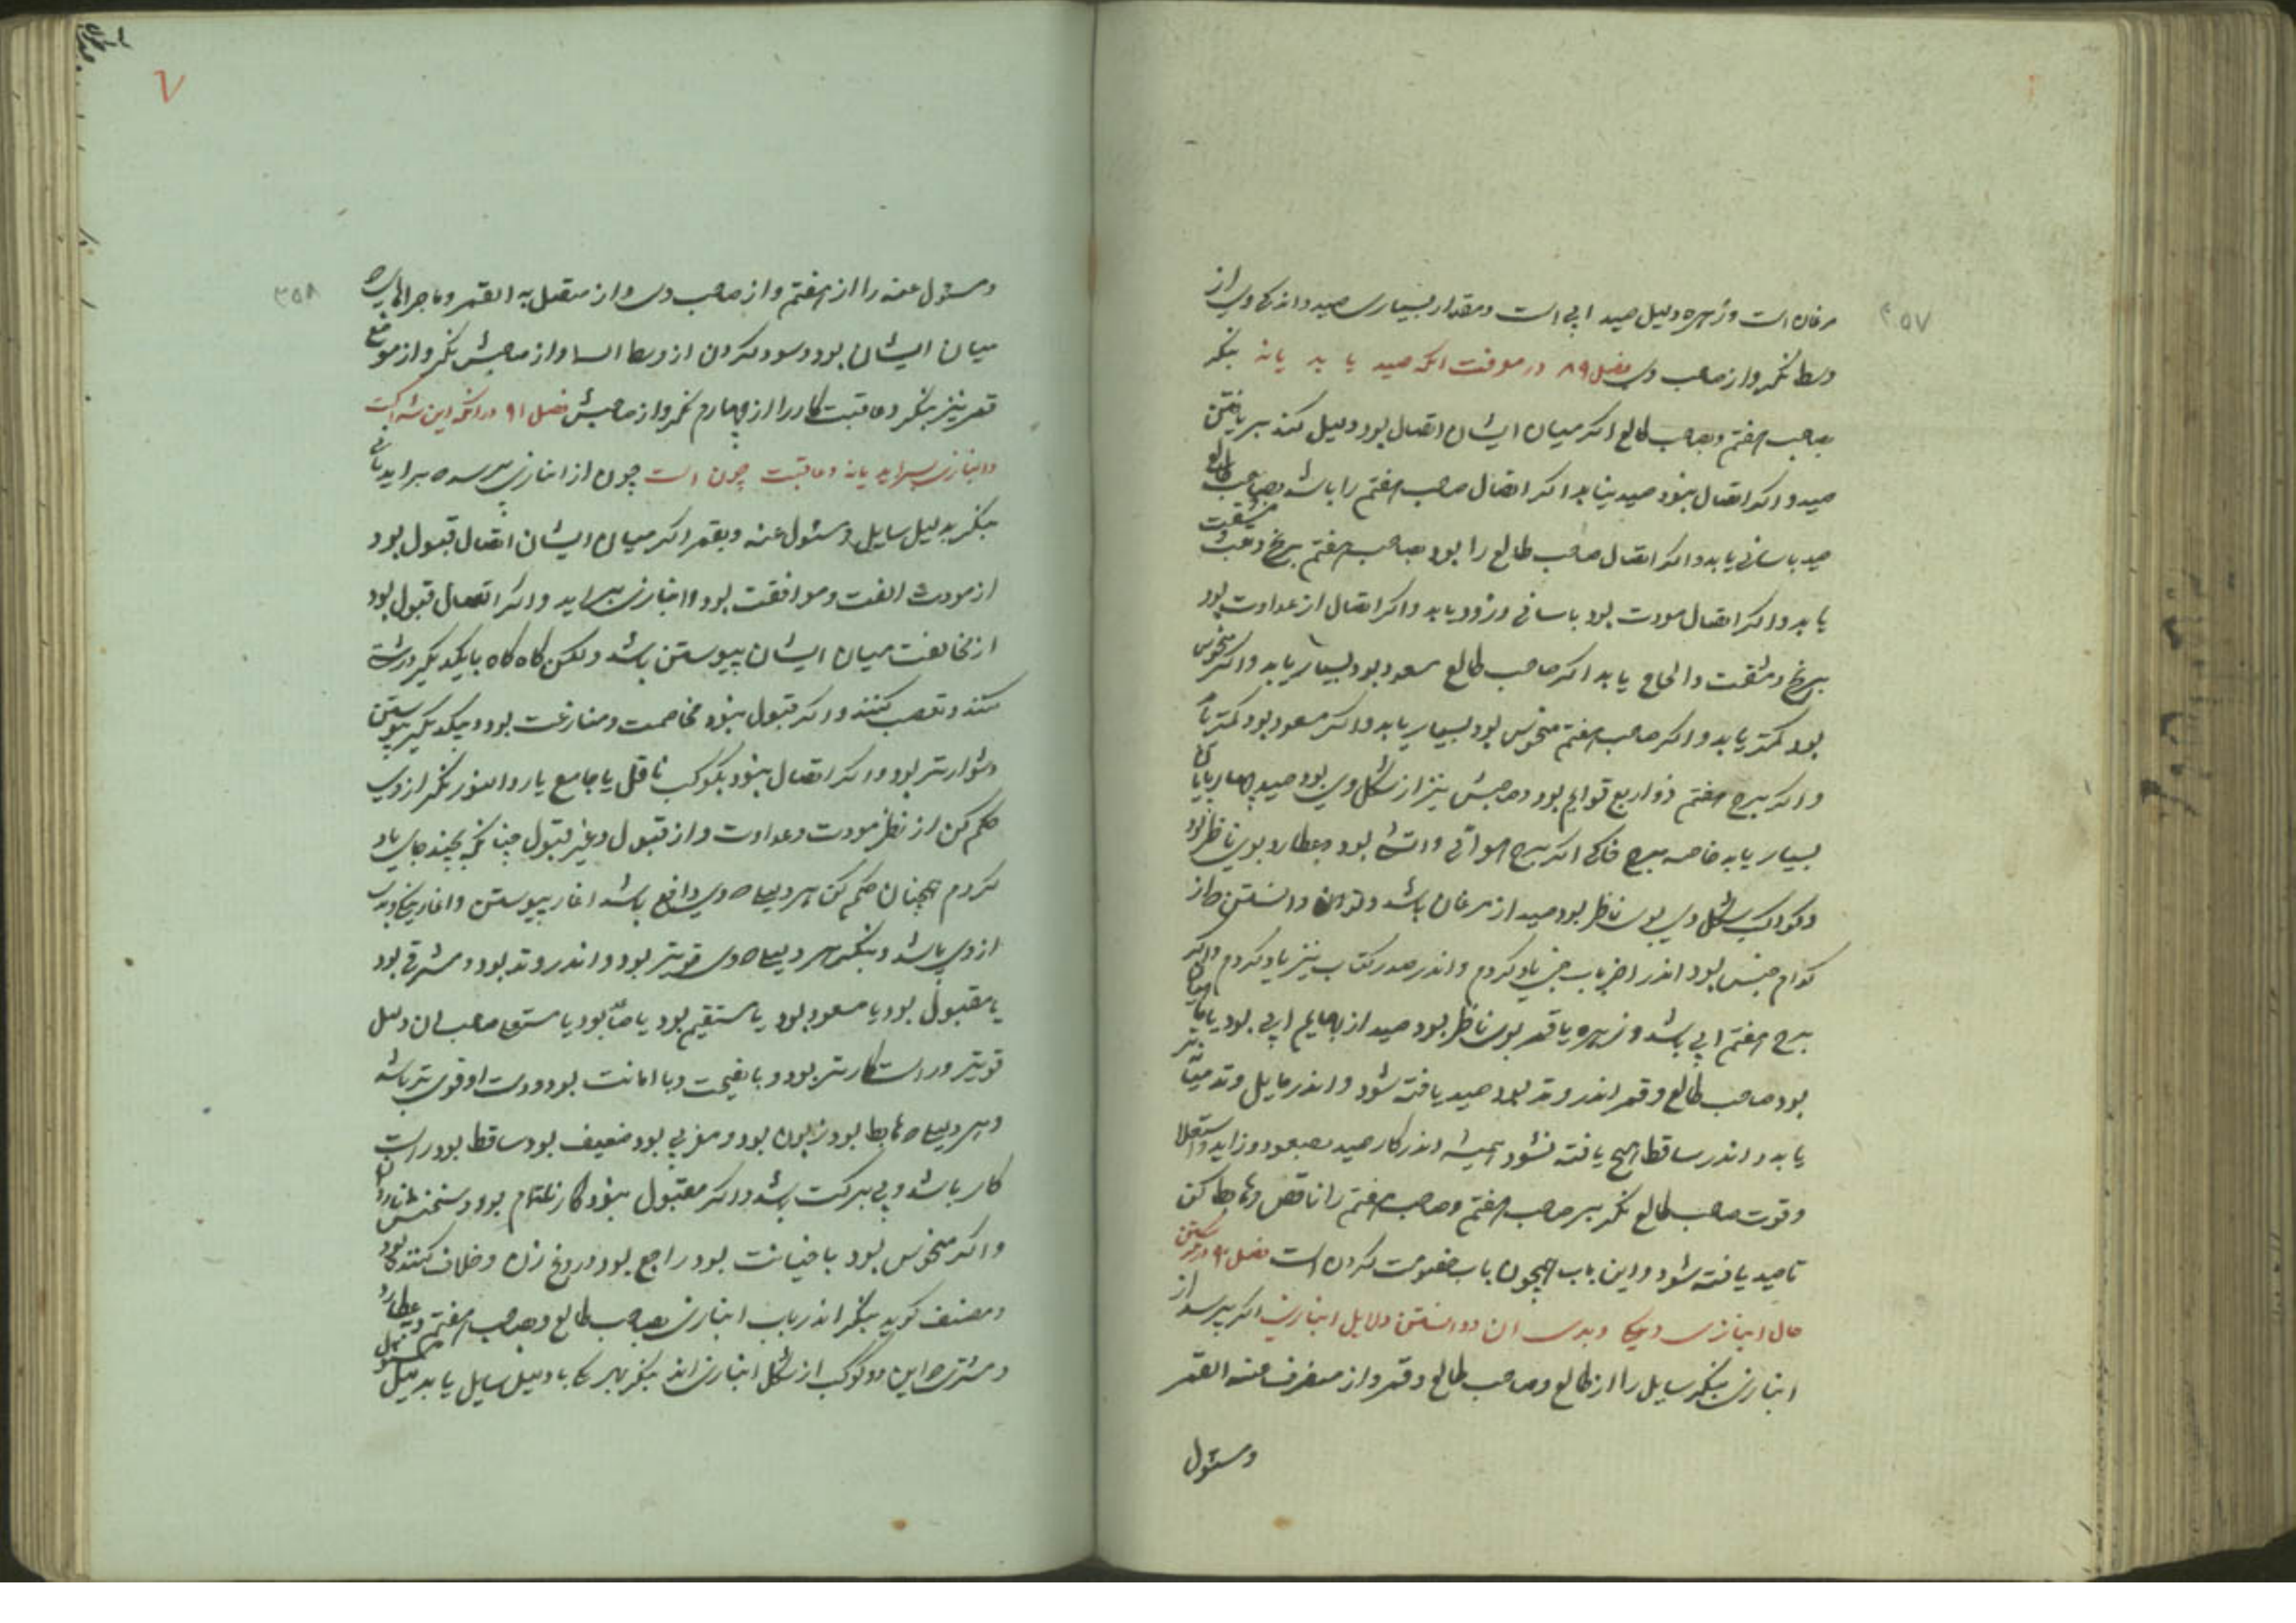 ۲۵۷
مرغان است و زهره دلیل صید آبی است و مقدار بسیاری صید و اندکی وی از
وسط نگر و از صاحب وی فصل ۸۹ در معرفت انکه صید یابد یا نه بنگر
بصاحب هفتم و بصاحب طالع اگر میان ایشان اتصال بود دلیل کند بر یافتن
صید و اگر اتصال نبود صید نیابد اگر اتصال صاحب هفتم را باشد بصاحب طالع
صید باسانی یابد و اگر اتصال صاحب طالع را بود بصاحب هفتم برنج و مشقت
یابد و اگر اتصال مودت بود باسانی و زود یابد و اگر اتصال از عداوت بود
برنج و مشقت و الحاح یابد اگر صاحب طالع مسعود بود بسیار یابد و اگر منحوس
بود کمتر یابد و اگر صاحب هفتم منحوس بود بسیار یابد و اگر مسعود بود کمتر
و اگر برج هفتم ذو اربع قوایم بود و صاحبش نیز از شکل وی بود صید چهارپایان
بسیار یابد خاصه برج خاکی اگر برج هوائی و اتشی بود و عطارد بوی ناظر بود
و کواکب شکل وی بوی ناظر بود صید از مرغان باشد و دانستن
کدام جنس بود اندر اخر باب یاد کردم و اندر صدر کتاب نیز یاد کردم و اگر
برج هفتم آبی باشد و زهره یا قمر بوی ناظر بود صید از بهایم آبی بود
بود صاحب طالع و قمر اندر وتد بود صید یافته شود و اندر مایل وتد
یابد و اندر ساقط هیچ یافته نشود همیشه اندر کار صید بصعود و زاید و استعلا
و قوت صاحب طالع نگر بر صاحب هفتم و صاحب هفتم را ناقص و هابط کن
تا صید یافته شود و این باب همچون باب خصومت کردن است فصل ۹۰ در
حال انبازی و نیکی و بدی ان و دانستن دلایل انبازی اگر بپرسد از
انبازی بنگر سایل را از طالع و صاحب طالع و قمر و از منصرف عنه القمر
و مسئول
۲۵۸
و مسئول عنه را از هفتم و از صاحب وی و از متصل به القمر و ماجراهای که
میان ایشان بود و سود کردن از وسط السما و از صاحبش نگر و از موضع
قمر نیز بنگر و عاقبت کار را از چهارم نگر و از صاحبش فصل ۹۱ در انکه این شراکت
و انبازی براید یا نه و عاقبت چون است چون از انبازی پرسد که براید یا نه
بنگر بدلیل سایل و مسئول عنه و بقمر اگر میان ایشان اتصال قبول بود
از مودت الفت و موافقت بود و انبازی براید و اگر اتصال قبول بود
از مخالفت میان ایشان پیوستن باشد ولکن گاه گاه با یکدیگر درشتی
کنند و تعصب کنند و اگر قبول نبود مخاصمت و منازعت بود و بیکدیگر پیوستن
دشوارتر بود و اگر اتصال نبود بکوکب ناقل یا جامع یا رد النور نگر از وی
حکم کن از نظر مودت و عداوت و از قبول و غیر قبول چنانکه بچند جای یاد
کردم همچنان حکم کن هر دلیل که وی دافع باشد اغاز پیوستن و اغاز نیکی و بدی
از وی باشد و بنگر هر دلیل که وی قویتر بود و اندر وتد بود و مشرقی بود
یا مقبول بود یا مسعود بود یا مستقیم بود یا صاعد بود یا مستعلی صاحب ان دلیل
قویتر و راستکارتر بود و با نصیحت و با امانت بود و دست او قوی تر باشد
و هر دلیل که هابط بود زبون بود و مغربی بود ضعیف بود ساقط بود راست
کار باشد و بی برکت باشد و اگر مقبول نبود کار ناتمام بود و سخنش
و اگر منحوس بود با خیانت بود راجع بود دروغ زن و خلاف کننده بود
و مصنف گوید بنگر اندر باب انبازی بصاحب طالع و صاحب هفتم و بعطارد
و مشتری که این دو کوکب از شکل انبازی اند بنگر بهر که با دلیل سایل یا بدلیل مسئول